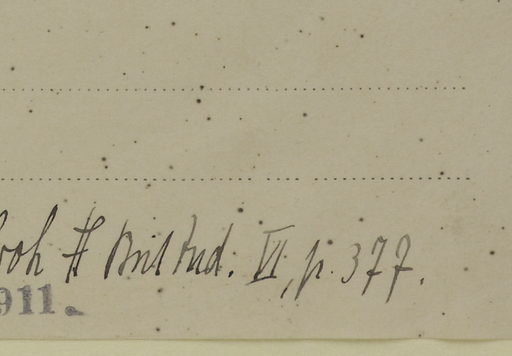 Fl Brit Ind. VI, p. 377.
911.